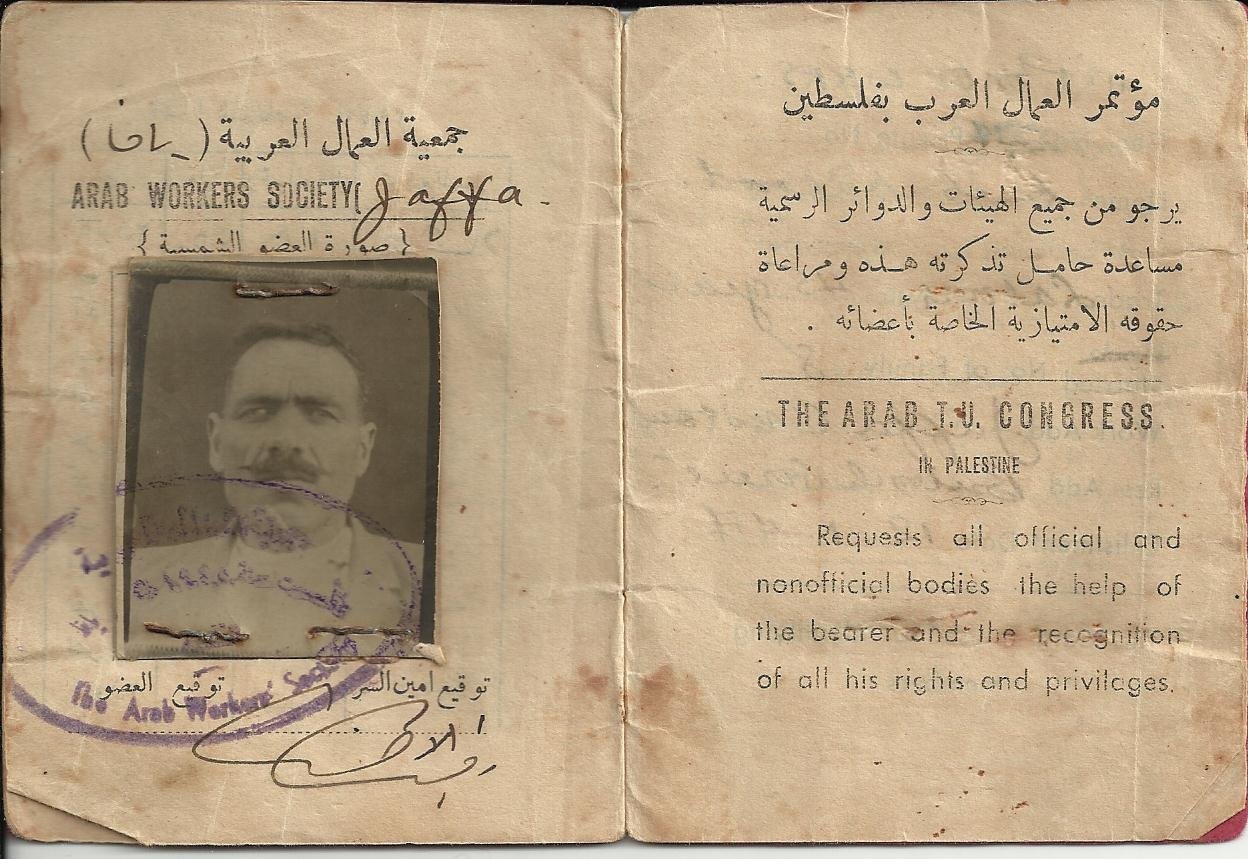 جمعية العمال العربية (يافا)
ARAB WORKERS SOCIETY( Jaffa.
{ صورة العضو الشمسية }
توقيع امين السر توقيع العضو
The Arab Workers' Society
مؤتمر العمال العرب بفلسطين
يرجو من جميع الهيئات والدوائر الرسمية
مساعدة حامل تذكرته هذه ومراعاة
حقوقه الامتيازية الخاصة بأعضائه .
THE ARAB T.U. CONGRESS.
IN PALESTINE
Requests all official and
nonofficial bodies the help of
the bearer and the recognition
of all his rights and privilages.